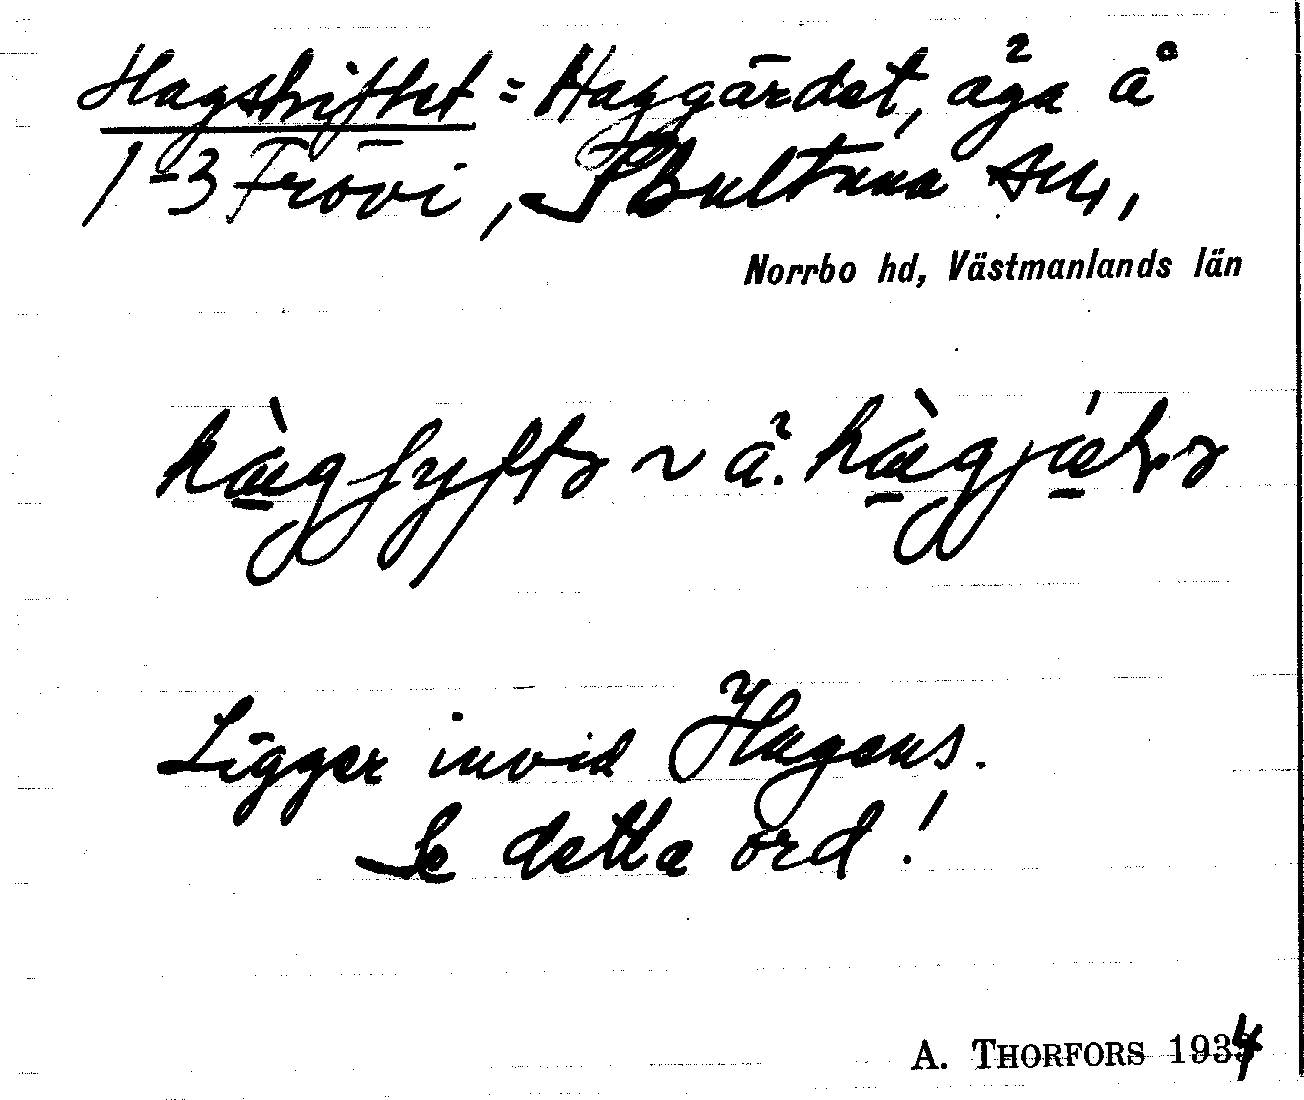 Hagskiftet = Haggärdet, äga å
1-3 Frövi, Skultuna sn,
Norrbo hd, Västmanlands län
~ ä.
Ligger invid Hagens.
Se detta ord!
A. THORFORS 1934